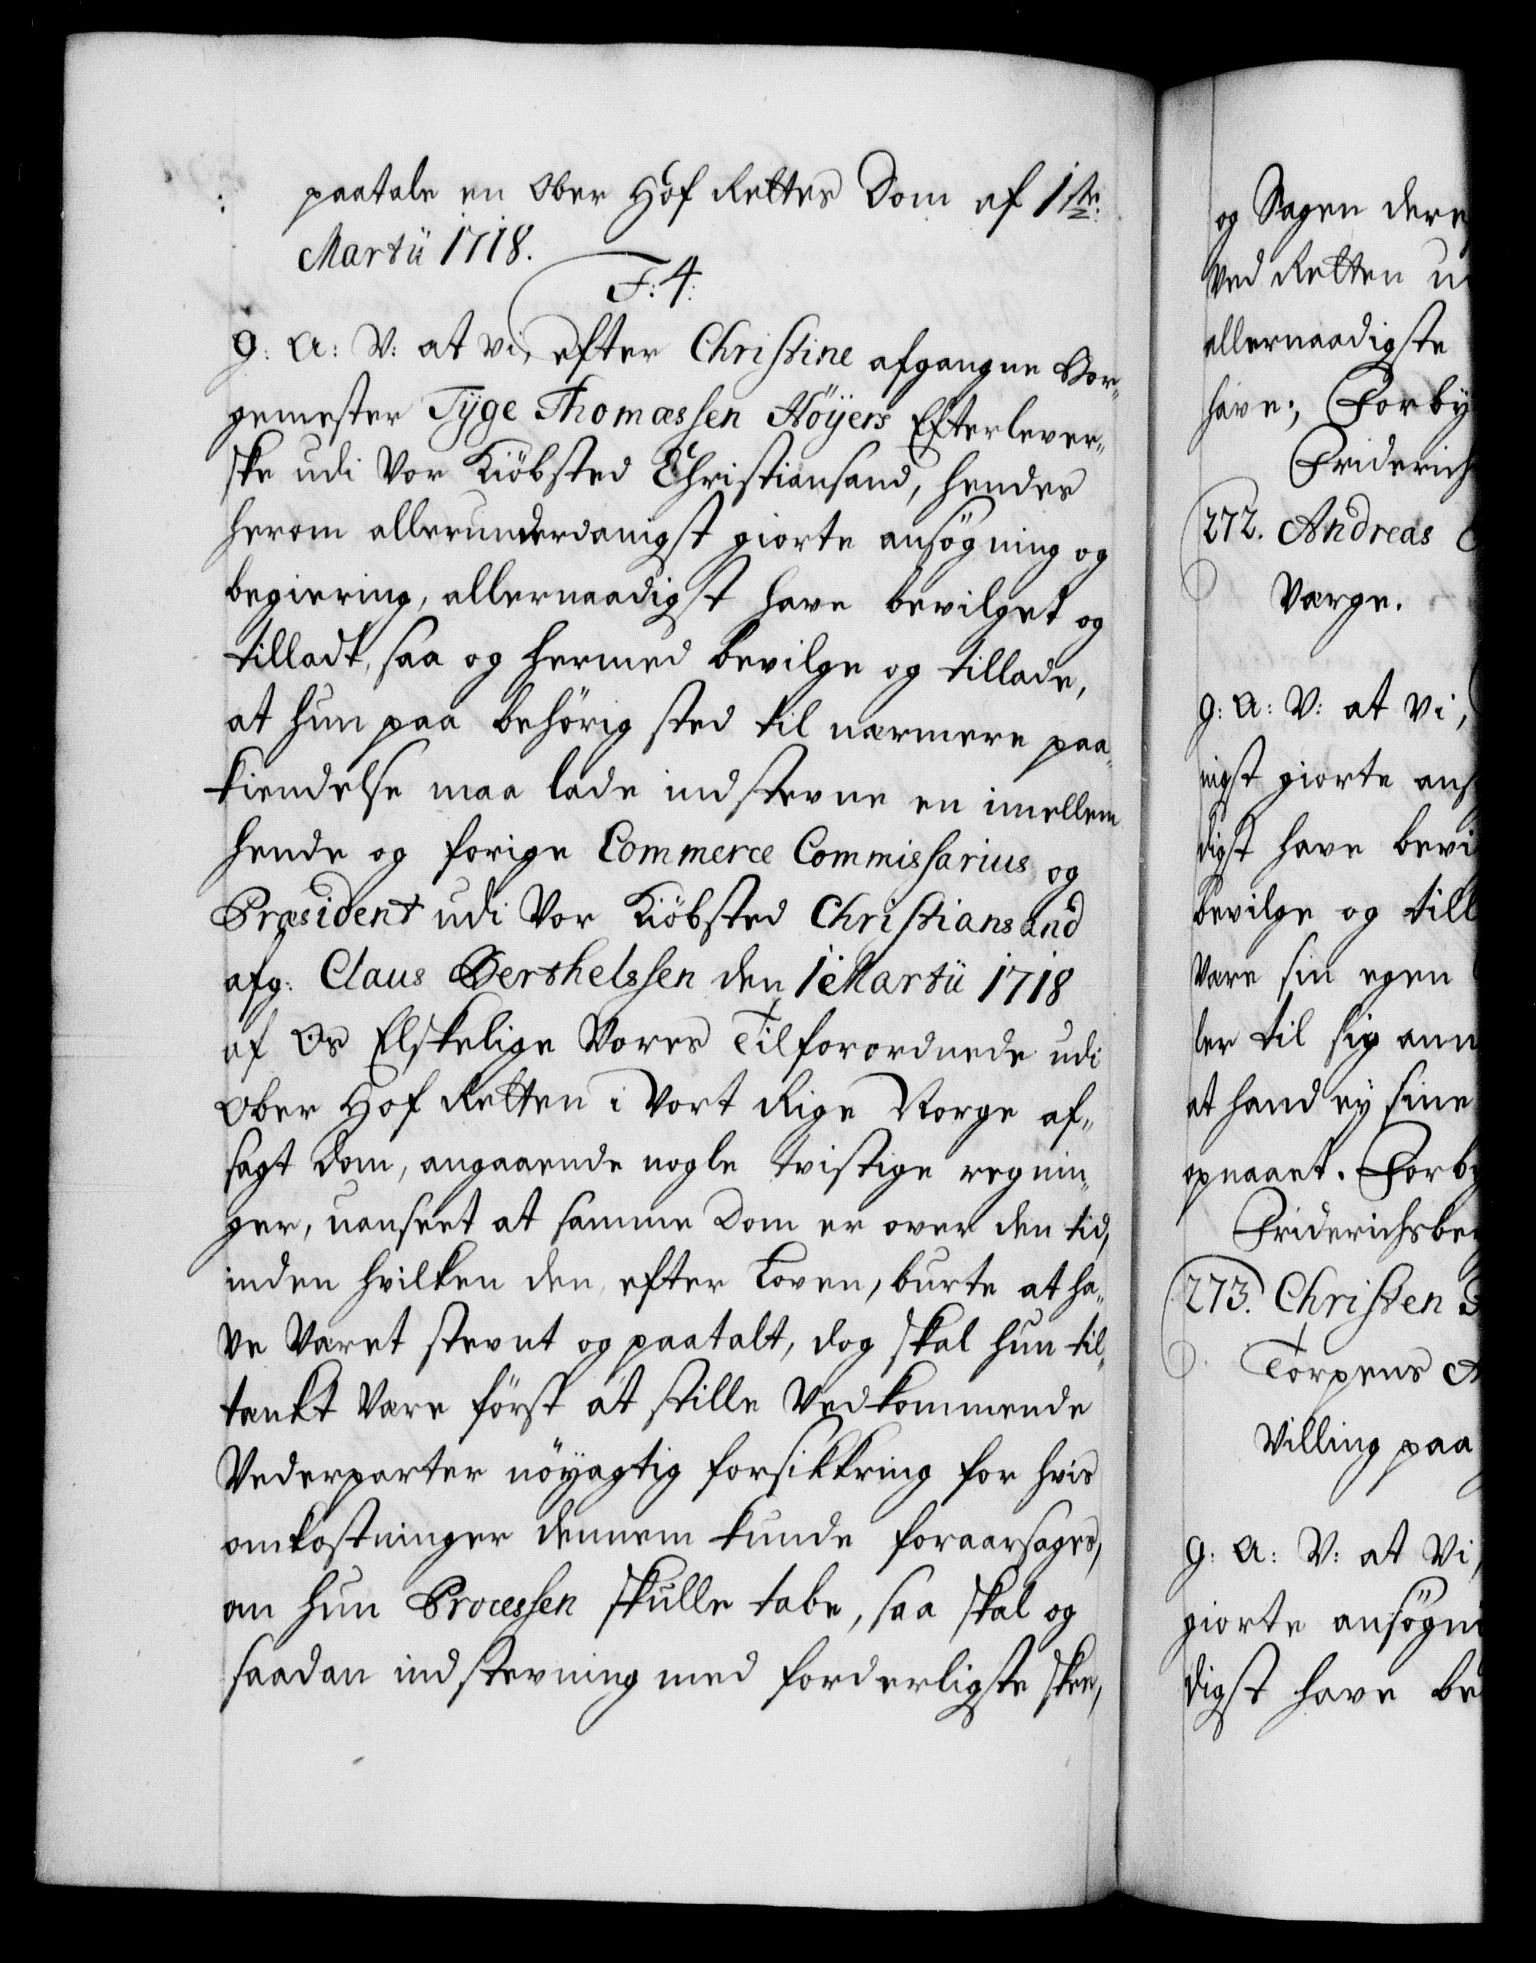 paatale en Ober Hof Rettes Dom af 1ste:
Martii 1718.
F: 4:
G: A: V: at vi, efter Christine afgangne Bor-
gemester Tÿge Thomæssen Höÿers Efterlever-
ske udi Vor Kiöbsted Christiansand, hendes
herom allerunderdanigst giorte ansögning og
begiering, allernaadigst have bevilget og
tilladt, saa og hermed bevilge og tillade,
at hun paa behörig sted til nærmere paa-
kiendelse maa lade indstevne en imellem
hende og forige Commerce Commissarius og
Præsident udi Vor Kiöbsted Christiansand
afg: Claus Berthelssen den 1 Martii 1718
af Os Elskelige Vores Tilforordnede udi
Ober Hof Retten i Vort Rige Norge af-
sagt Dom, angaaende nogle tvistige regnin-
ger, uanseet at samme Dom er over den tid,
inden hvilken den, efter Loven, burte at ha-
ve været stevnt og paatalt, dog skal hun til-
tænkt være först at stille Vedkommende
Vederparter nöÿagtig forsikkring for hvis
omkostninger dennem kunde foraarsages,
om hun Processen skulle tabe, saa skal og
saadan indstevning med forderligste skee,
og Sagen dere
ved Retten u
allernaadigste
have; Forby
Friderich
272. Andreas
Værge.
G: A: V: at vi,
nigst giorte ans
digst have bevi
bevilge og till
være sin egen
ler til sig ann
at hand ey sine
opnaaet. Forby
Friderichsber
273. Christen
Torpens A
Villing paa
G: A: V: at Vi,
giorte ansögni
digst have be